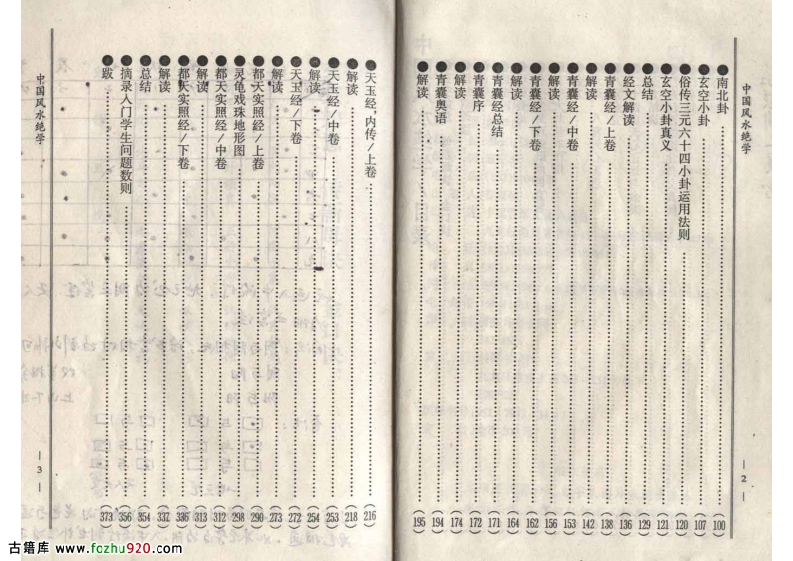 中国风水绝学
●南北卦(100)
●玄空小卦(107)
●俗传三元六十四小卦运用法则(120)
●玄空小卦真义(121)
●总结(129)
●经文解读(136)
●青囊经/上卷(138)
●解读(142)
●青囊经/中卷(153)
●解读(156)
●青囊经/下卷(162)
●解读(164)
●青囊经总结(171)
●青囊序(172)
●解读(174)
●青囊奥语(194)
●解读(195)
— 2 —
●天玉经、内传/上卷(216)
●解读(218)
●天玉经/中卷(253)
●解读(254)
●天玉经/下卷(272)
●解读(273)
●都天实照经/上卷(290)
●灵龟戏珠地形图(298)
●都天实照经/中卷(312)
●解读(313)
●都天实照经/下卷(336)
●解读(337)
●总结(354)
●摘录入门学生问题数则(356)
●跋(373)
中国风水绝学
— 3 —
古籍库 www.fozhu920.com